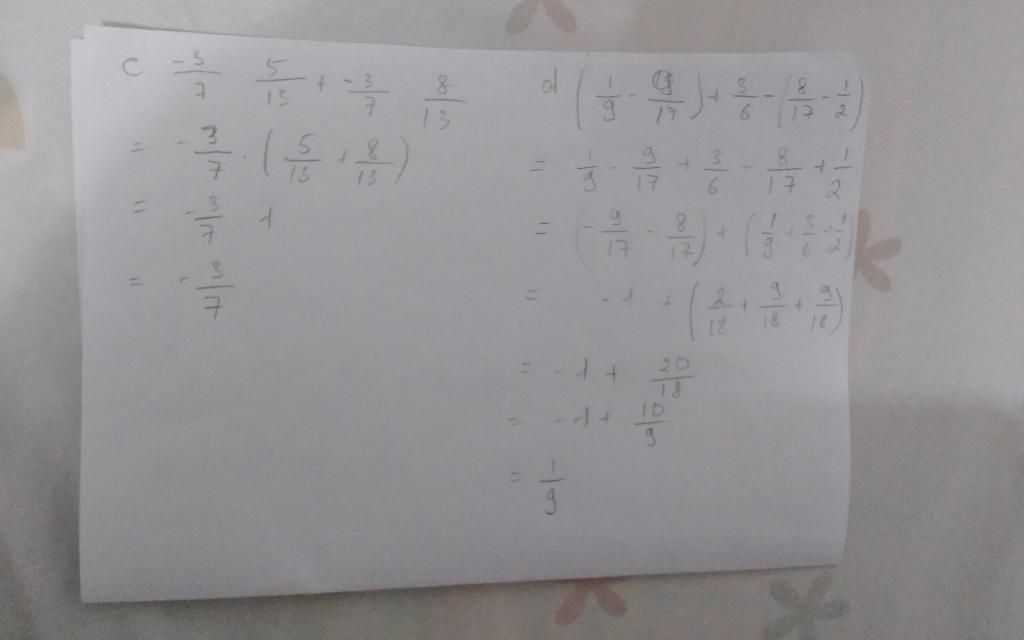 c -3/7 · 5/13 + -3/7 · 8/13
= -3/7 · (5/13 + 8/13)
= -3/7 · 1
= -3/7
d (1/9 - 9/17) + 3/6 - (8/17 - 1/2)
= 1/9 - 9/17 + 3/6 - 8/17 + 1/2
= (-9/17 - 8/17) + (1/9 + 3/6 + 1/2)
= -1 + (2/18 + 9/18 + 9/18)
= -1 + 20/18
= -1 + 10/9
= 1/9